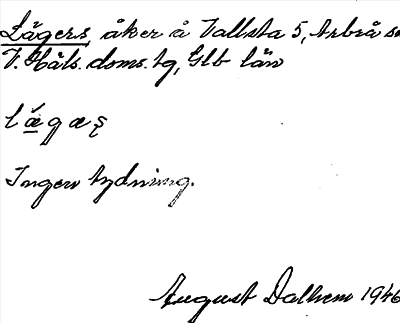 Lägers, åker å Vallsta 5, Arbrå sn
V. Häls. doms. tg, Glb län
lǽgæş
Ingen tydning.
August Dalhem 1946